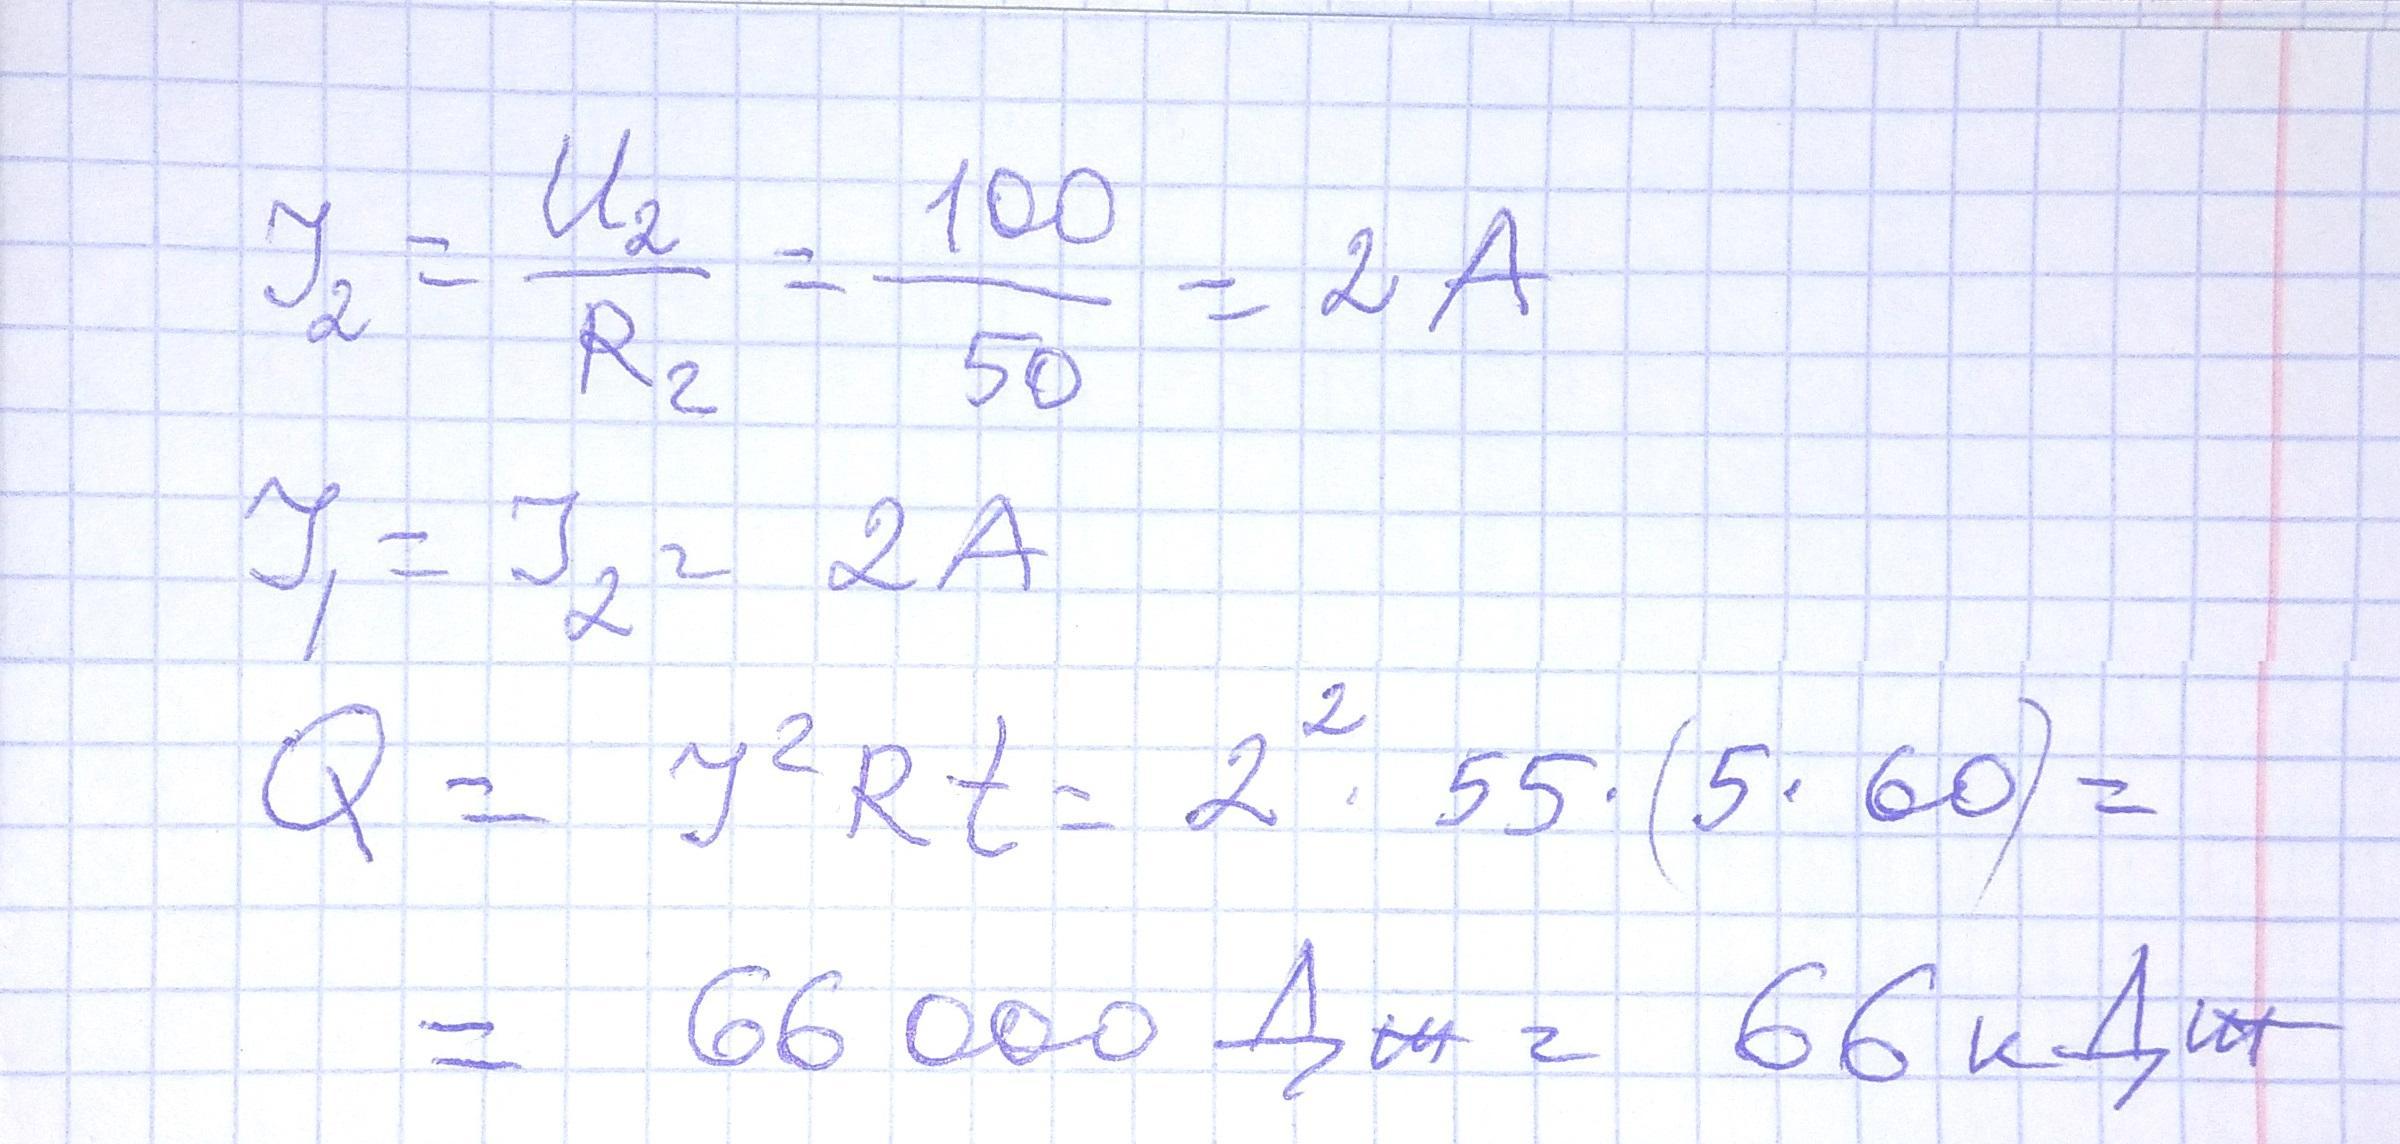 I₂ = U₂/R₂ = 100/50 = 2 А
I₁ = I₂ = 2 А
Q = I²Rt = 2² · 55 · (5 · 60) =
= 66 000 Дж = 66 кДж